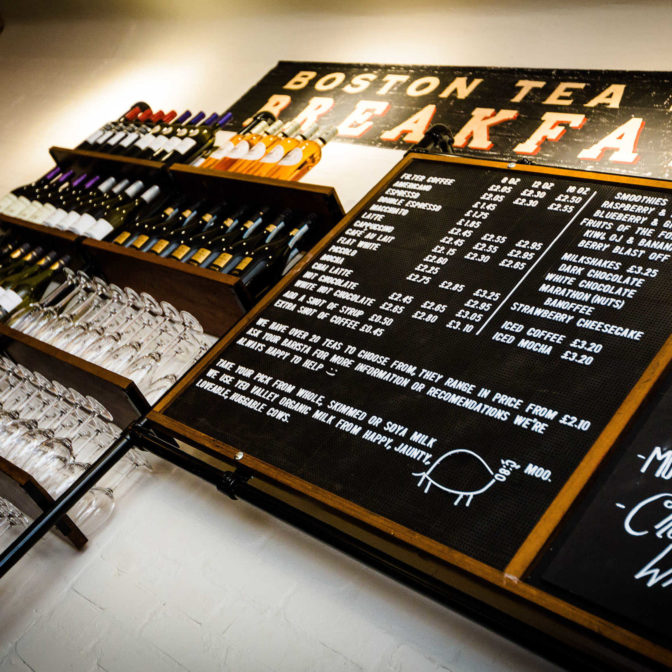 BOSTON TEA
BREAKFA
8 OZ 12 OZ 16 OZ
FILTER COFFEE £2.05 £2.30 £2.50
AMERICANO £2.05 £2.30 £2.55
ESPRESSO £1.45
DOUBLE ESPRESSO £1.75
£1.85
LATTE £2.55 £2.95
£2.55 £2.95
CAFE AU LAIT £2.15 £2.30 £2.65
FLAT WHITE £2.60
PICCOLO £2.25
MOCHA £2.75 £3.25
CHAI LATTE £2.95
HOT CHOCOLATE £2.45 £2.65 £2.95
WHITE HOT CHOCOLATE £2.65 £2.80 £3.10
ADD A SHOT OF SYRUP £0.50
EXTRA SHOT OF COFFEE £0.45
SMOOTHIES
RASPBERRY &
BLUEBERRY &
FRUITS OF THE
KIWI, OJ & BANANA
BERRY BLAST OFF
MILKSHAKES £3.25
DARK CHOCOLATE
WHITE CHOCOLATE
MARATHON (NUTS)
BANOFFEE
STRAWBERRY CHEESECAKE
ICED COFFEE £3.20
ICED MOCHA £3.20
WE HAVE OVER 20 TEAS TO CHOOSE FROM, THEY RANGE IN PRICE FROM £2.10
ASK YOUR BARISTA FOR MORE INFORMATION OR RECOMENDATIONS WE'RE
ALWAYS HAPPY TO HELP :)
TAKE YOUR PICK FROM WHOLE, SKIMMED OR SOYA MILK
WE USE YEO VALLEY ORGANIC MILK FROM HAPPY, JAUNTY,
LOVEABLE, HUGGABLE COWS.
MOO.